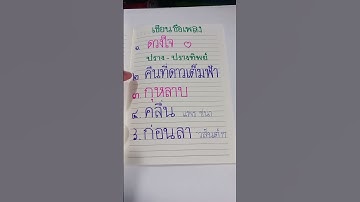 เขียนชื่อเพลง
๑. ดวงใจ
ปราง - ปรางทิพย์
๒. คืนที่ดาวเต็มฟ้า
๓. กุหลาบ
๔. คลื่น
ก่อนลา